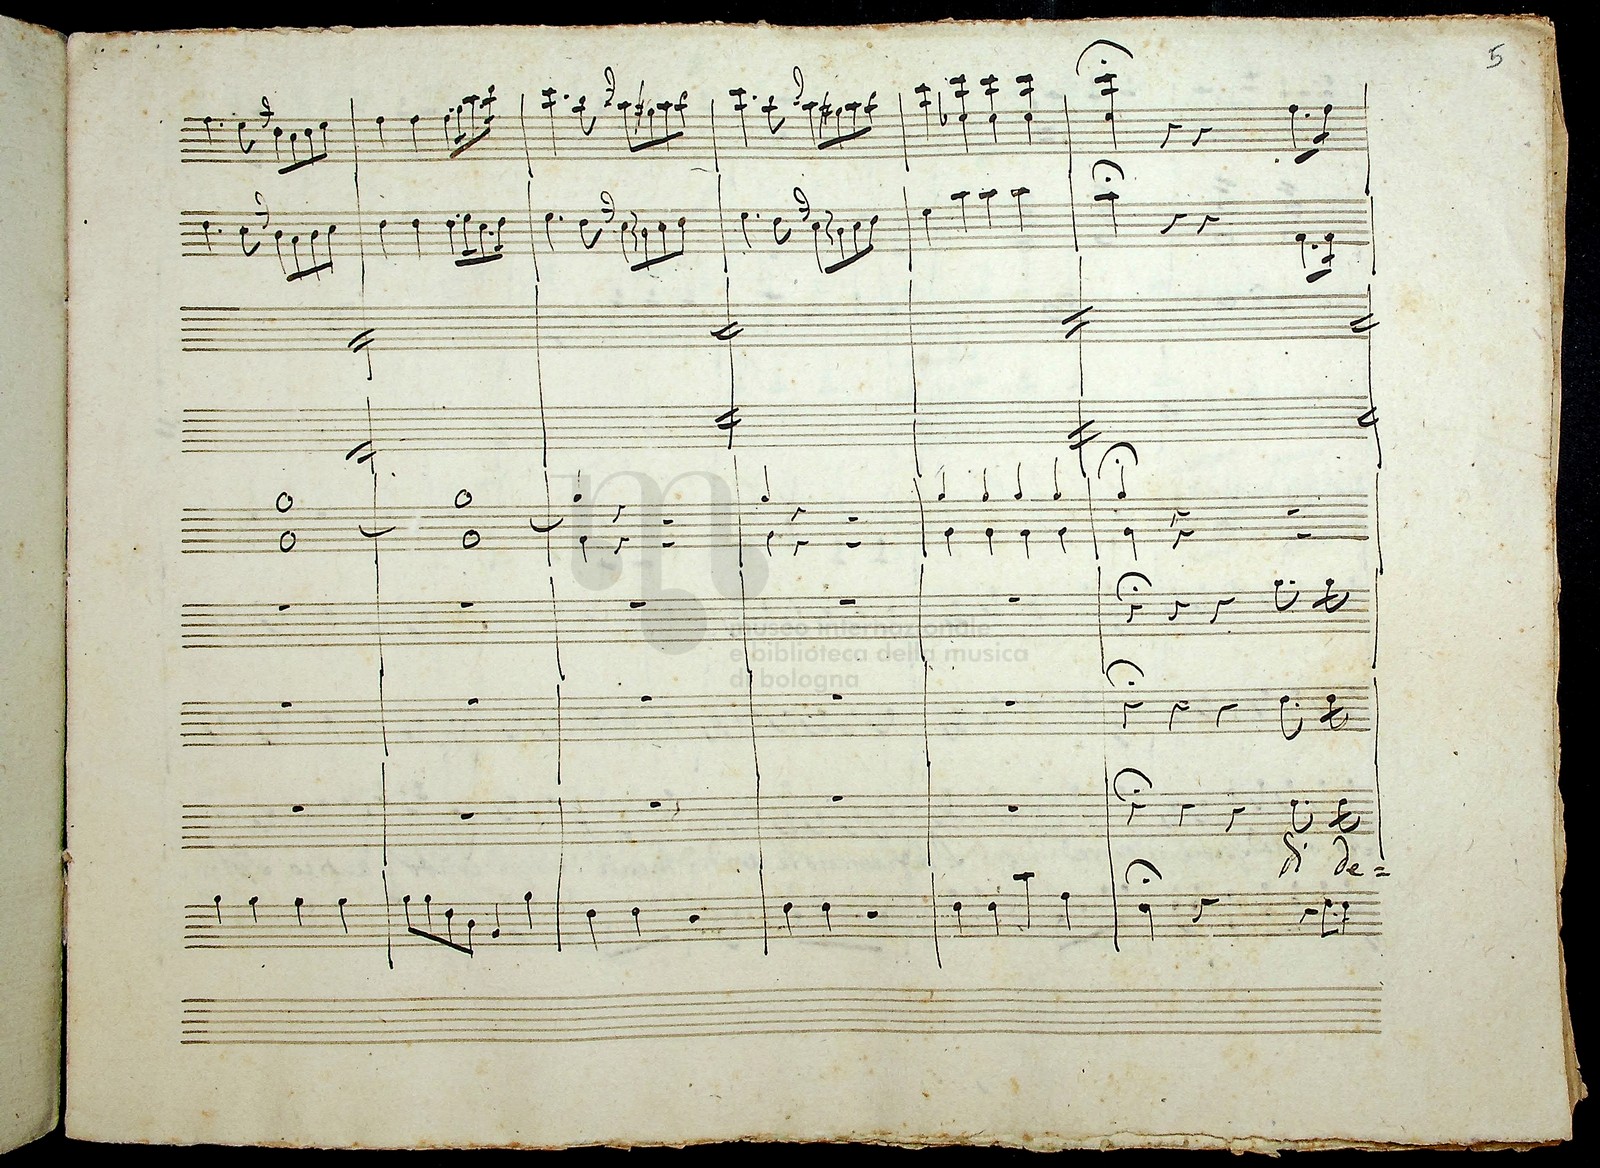 5
museo internazionale
e biblioteca della musica
di bologna
di de=